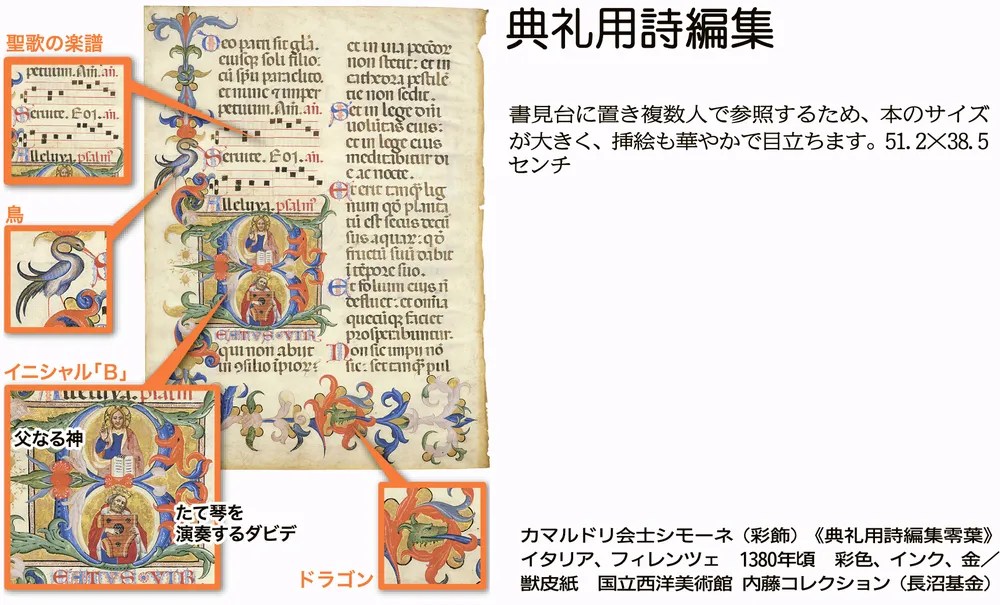 典礼用詩編集
書見台に置き複数人で参照するため、本のサイズ
が大きく、挿絵も華やかで目立ちます。51.2×38.5
センチ
聖歌の楽譜
鳥
イニシャル「B」
父なる神
たて琴を
演奏するダビデ
ドラゴン
Deo patri sit gl̄a.
eiusq̄ soli filio:
cū sp̄u paraclito.
et nunc et imper
petuum. Am̄. an̄.
Seruite. Eoı. an̄.
Alleluya. psalm̄
qui non abiit
et in uia peccor̄
non stetit: et in
cathedra pestilē
tie non sedit.
Set in lege dn̄i
uolūtas eius:
et in lege eius
meditabitur di
e ac nocte.
Et erit tamq̄ lig
num qd̄ planta
tū est secus decur̄
sus aquar̄: qd̄
fructū suū dabit
ī tēpore suo.
Et folium eius n̄
defluet: et om̄ia
quecūq̄ faciet
prosperabuntur.
Non sic impii nō
sic: set tamq̄ pul
カマルドリ会士シモーネ（彩飾）《典礼用詩編集零葉》
イタリア、フィレンツェ　1380年頃　彩色、インク、金／
獣皮紙　国立西洋美術館 内藤コレクション（長沼基金）